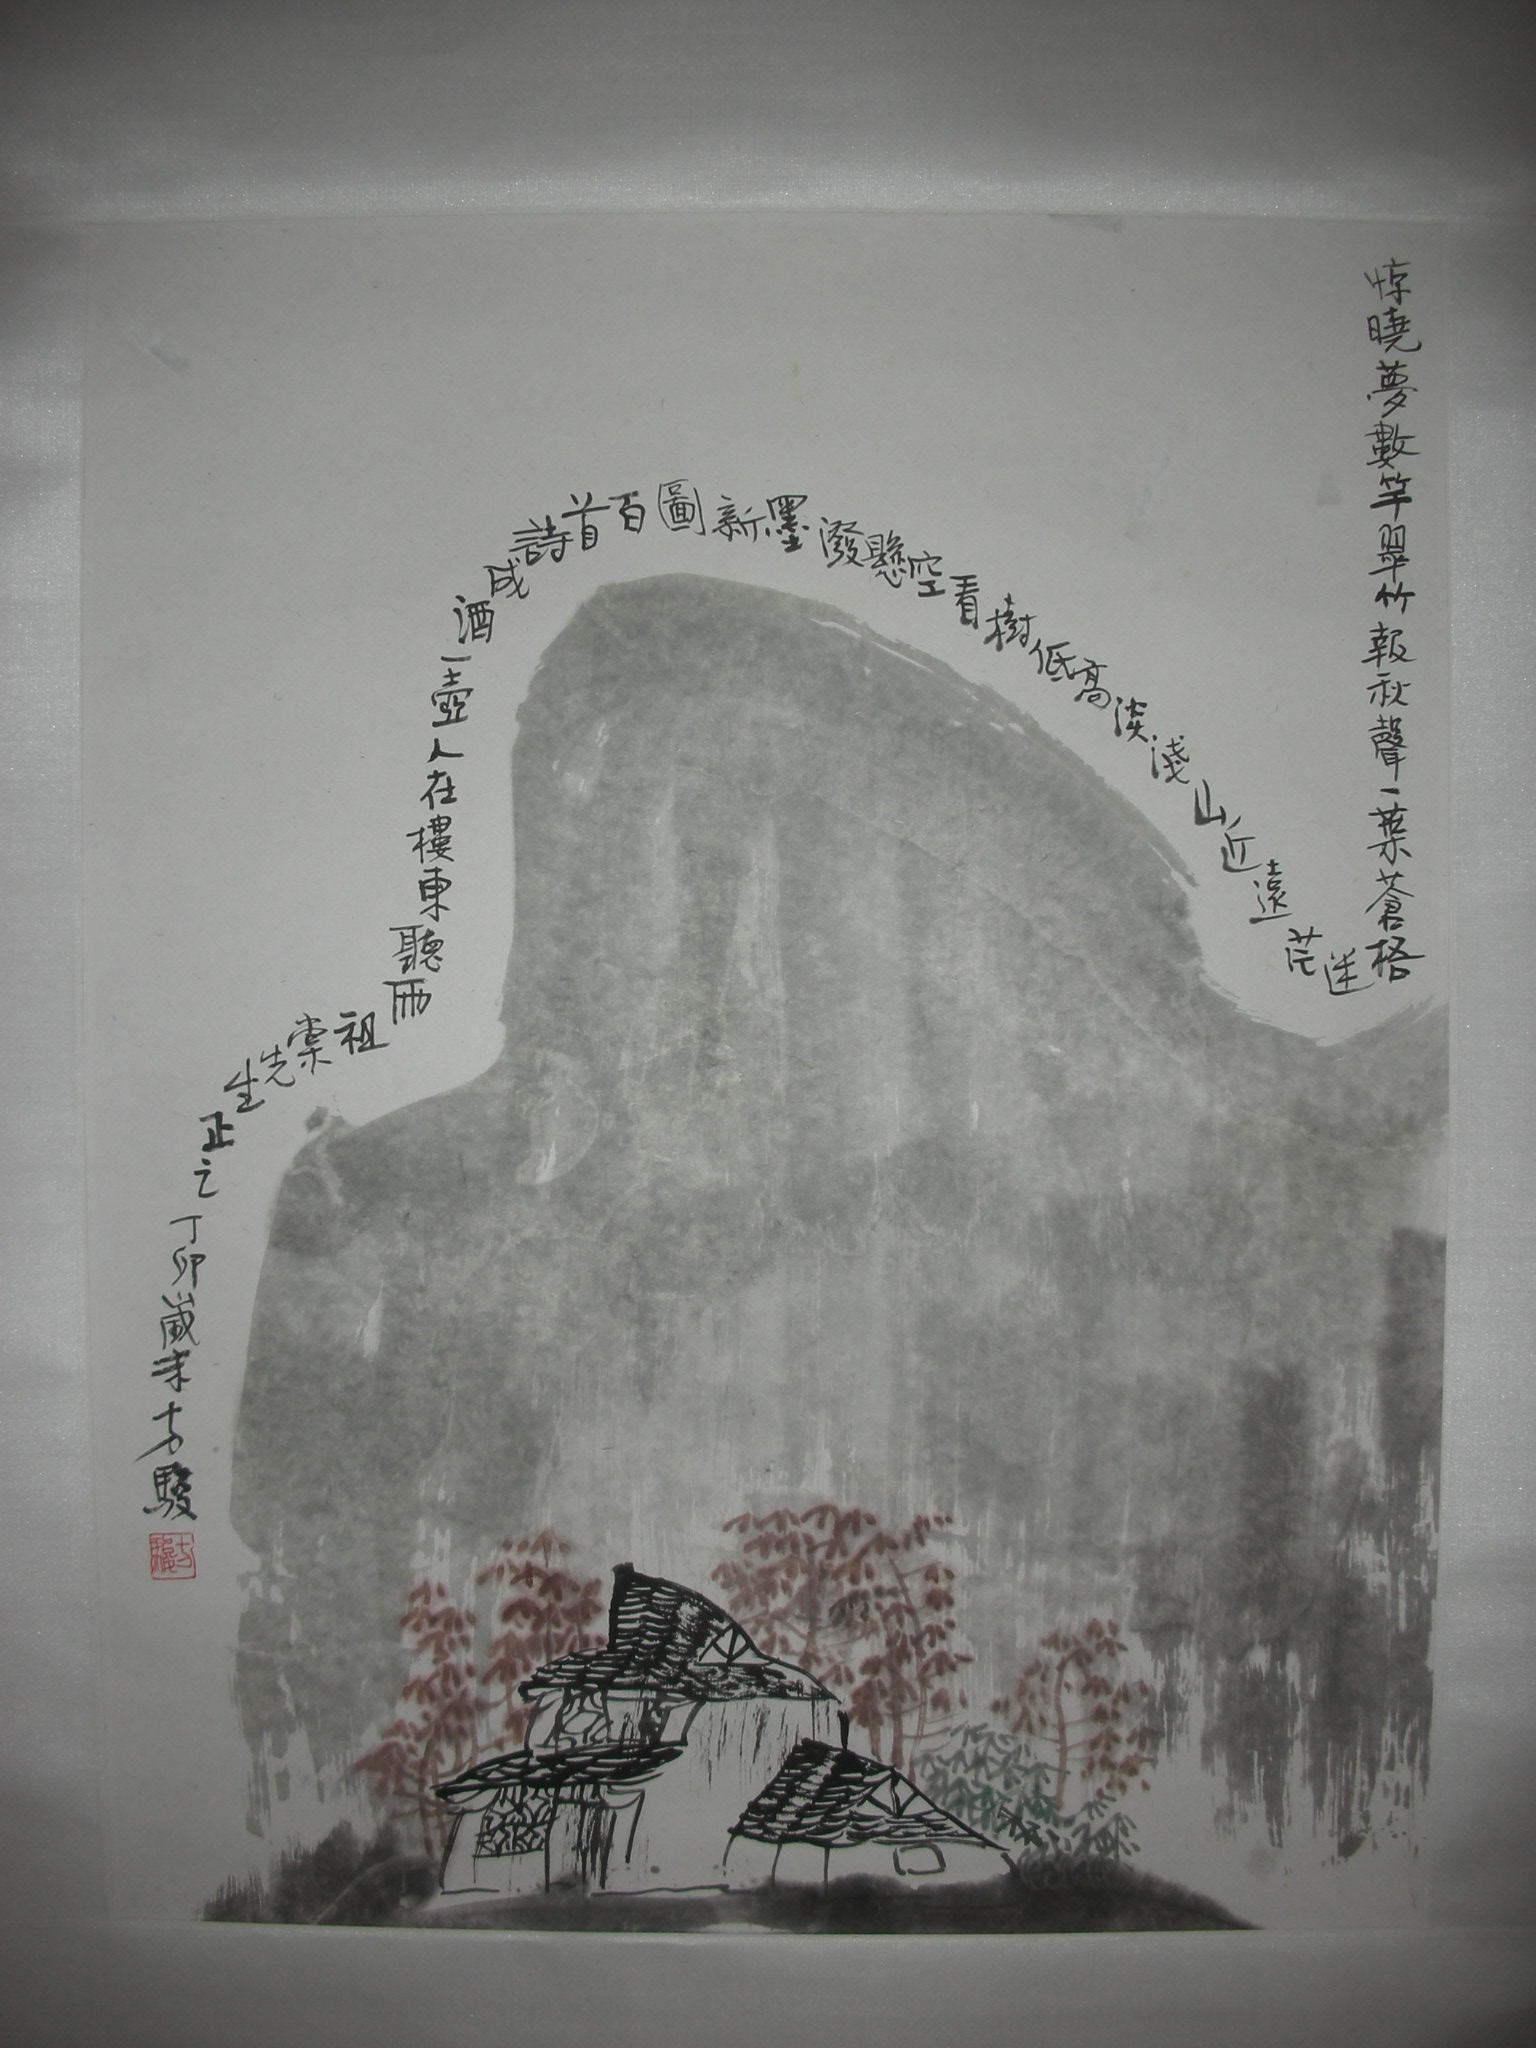 惊曉夢數竿翠竹報秋聲一葉蒼梧
迷茫遠近山淺淡高低樹看空懸潑墨新圖百首詩成酒一壺人在樓東聽雨
祖棠先生正之
丁卯歲末方駿
方駿